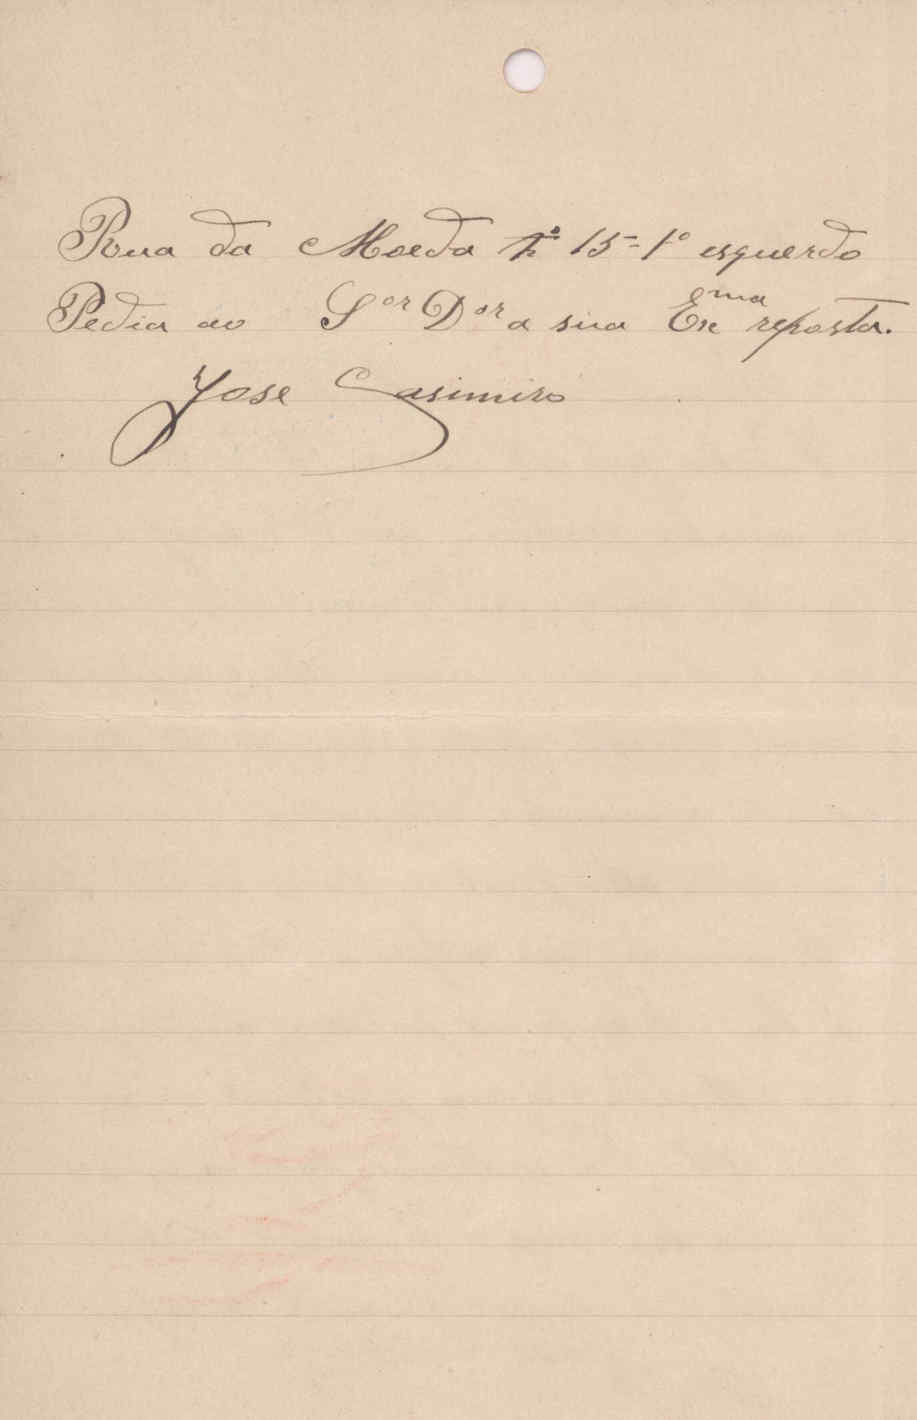 Rua da Moeda nº 15-1º esquerdo
Pedia ao Sor Dor a sua Exma reposta.
Jose Casimiro